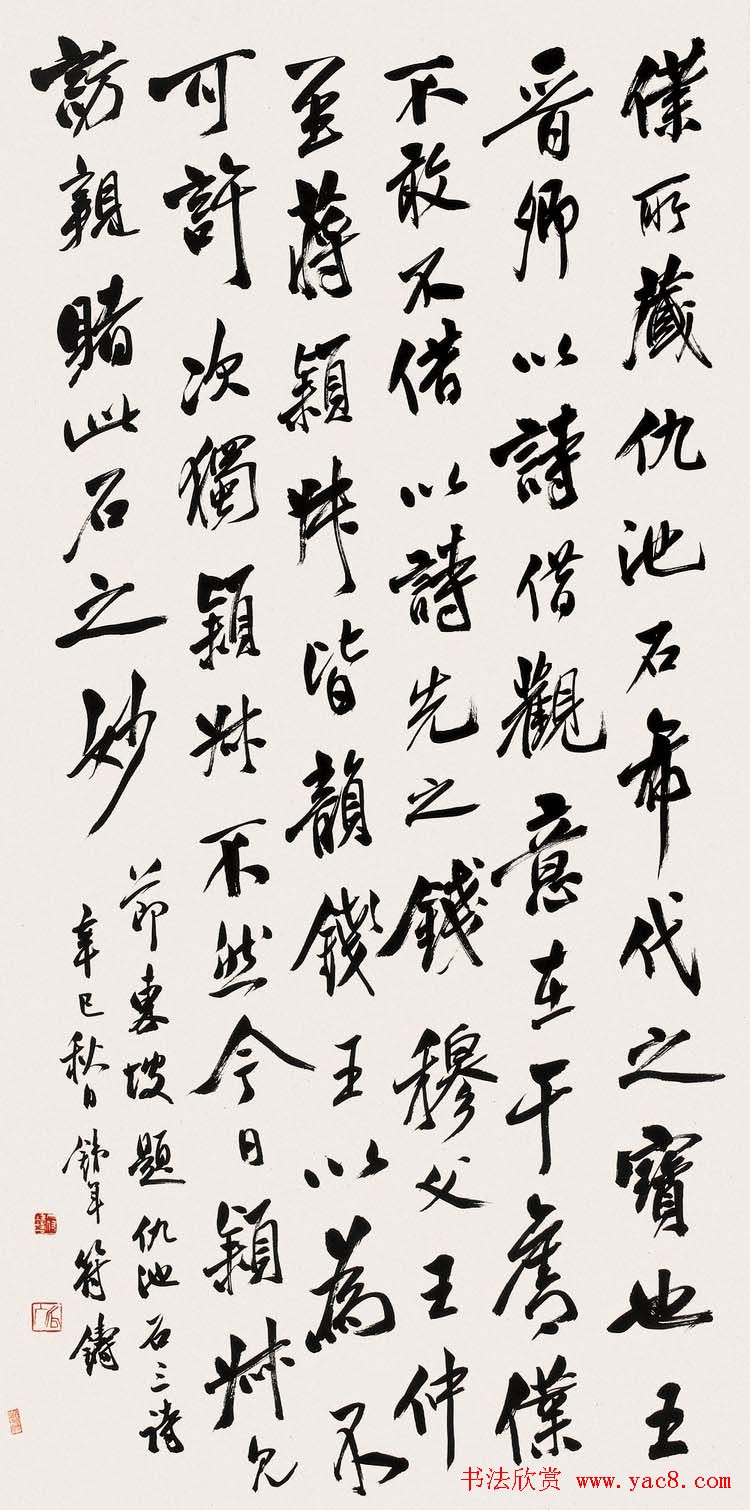 僕所藏仇池石希代之寶也王
晉卿以詩借觀意在于奪僕
不敢不借以詩先之錢穆父王仲
至蔣穎叔皆韻錢王以為不
可許次獨穎叔不然今日穎叔見
訪親賭此石之妙
節東坡題仇池石三詩
辛巳秋日鐵年符鑄
书法欣赏 www.yac8.com